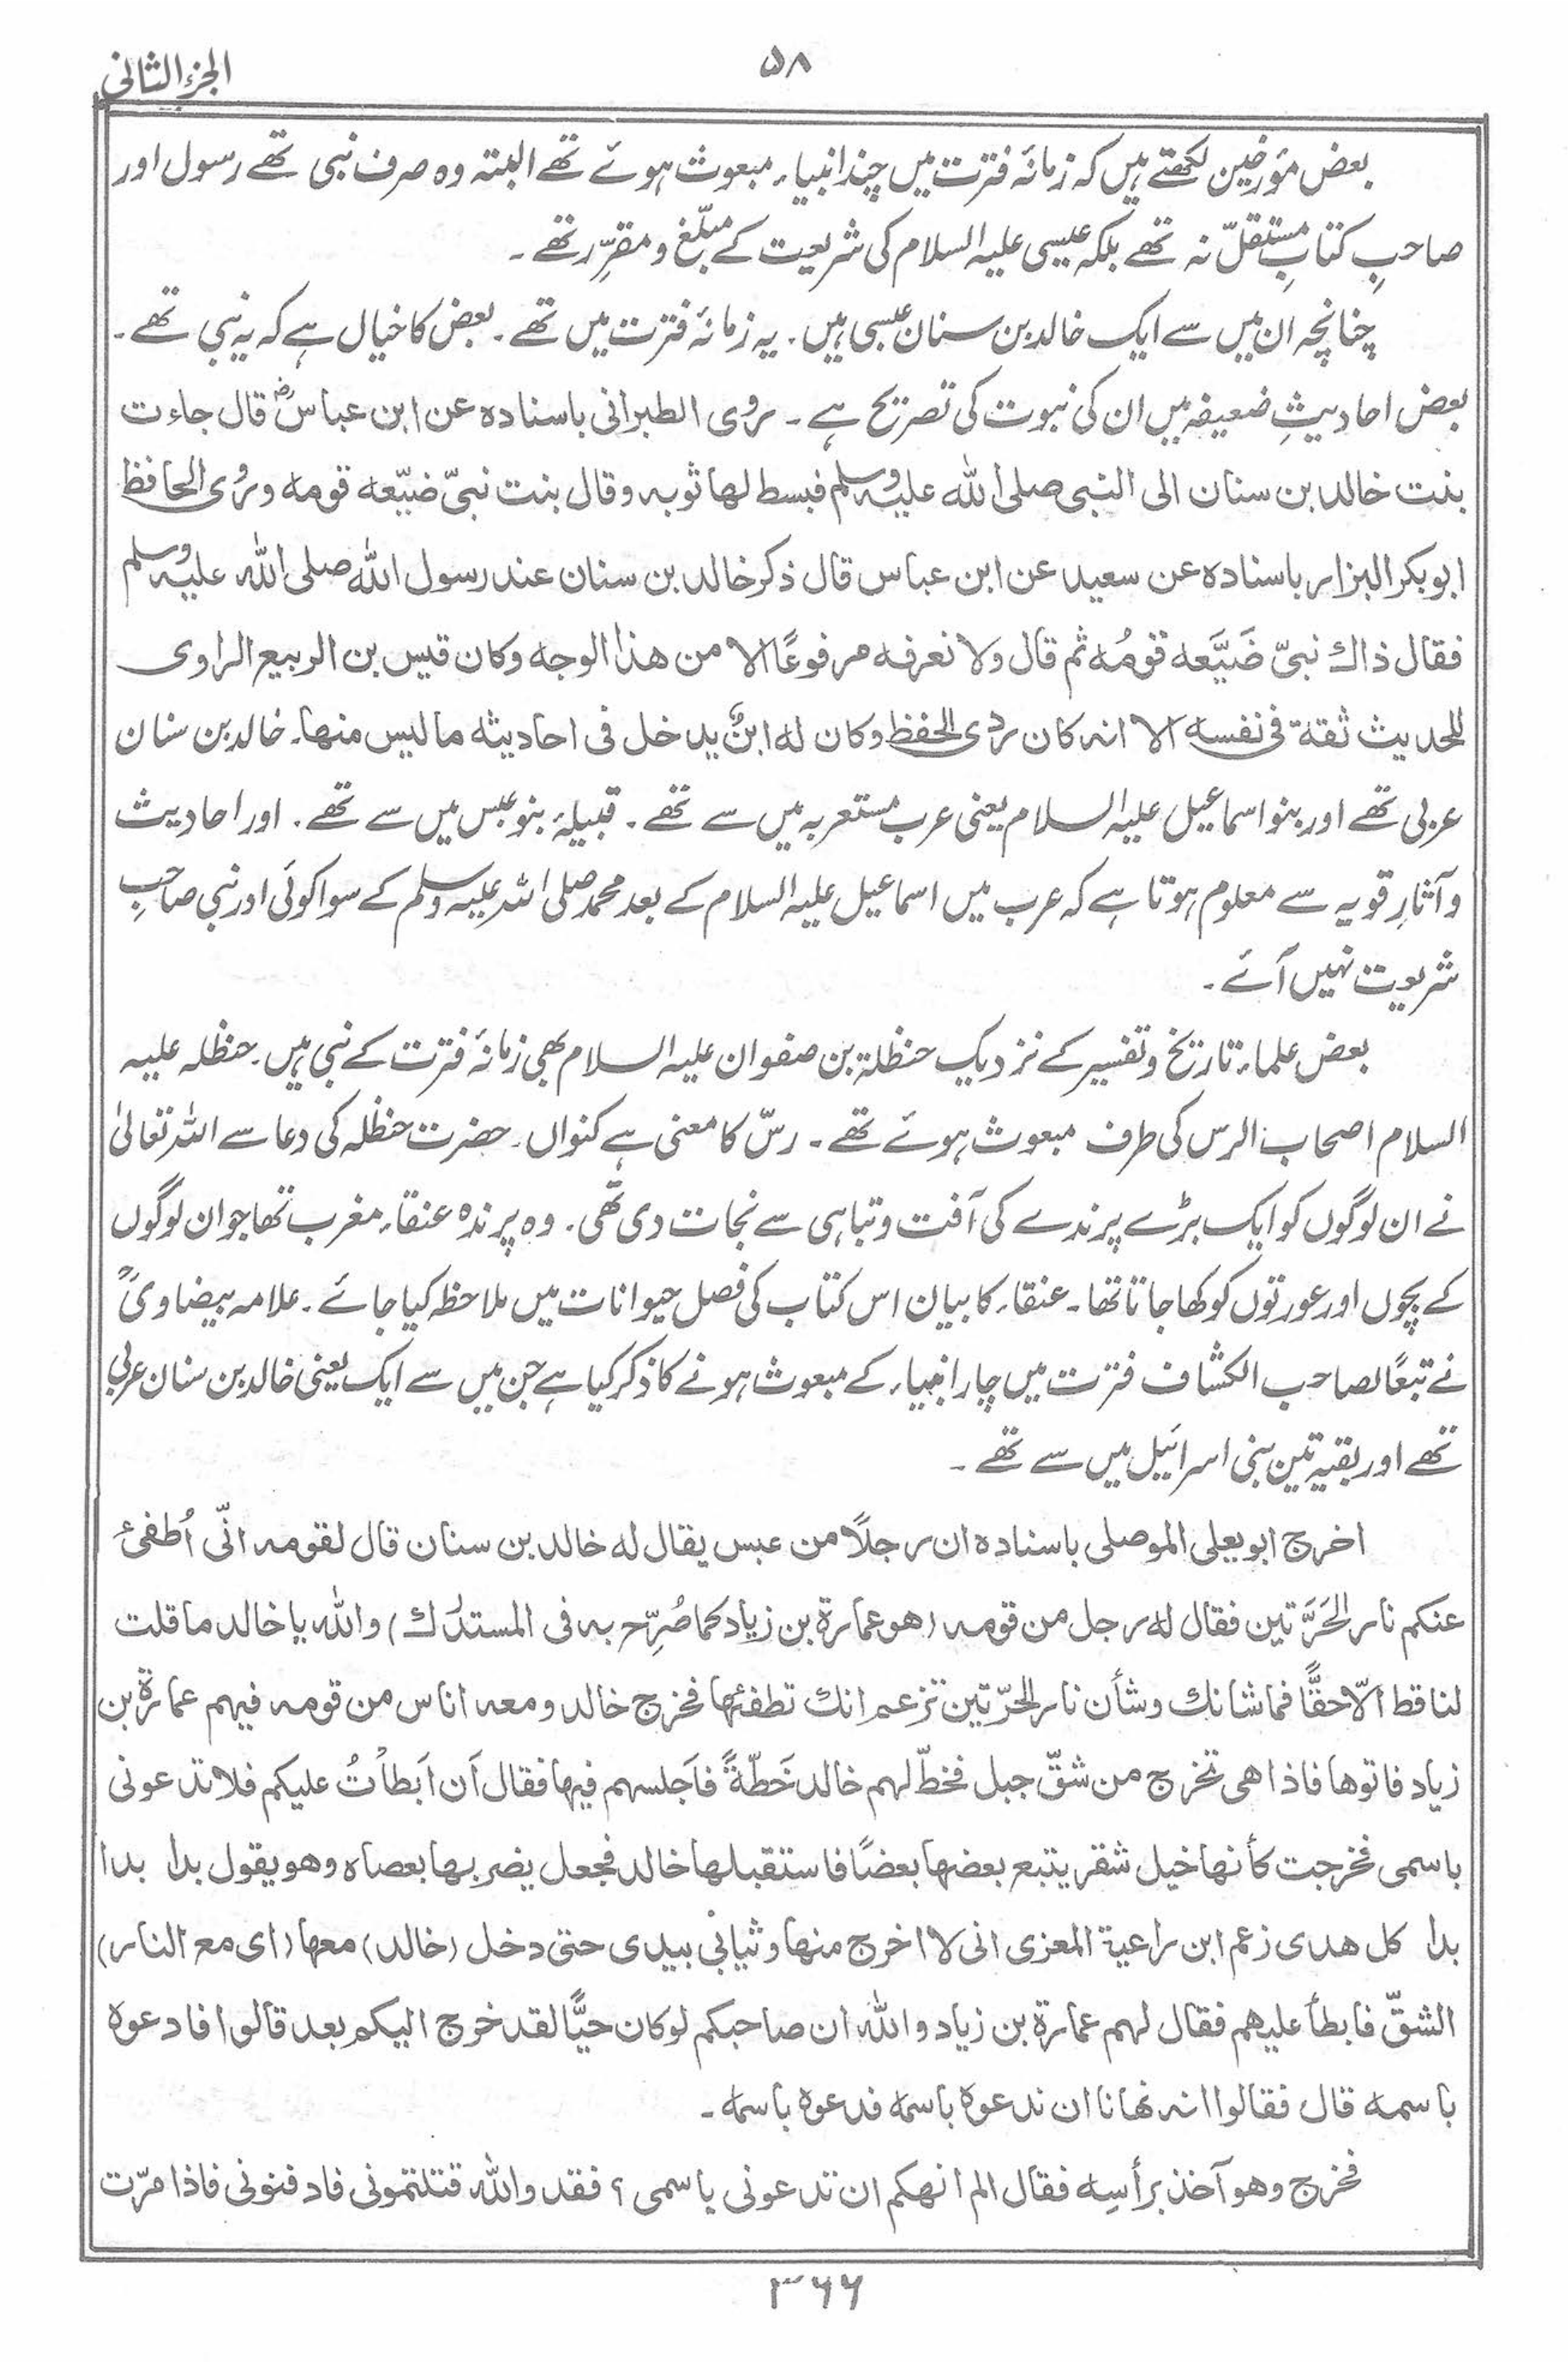 ۵۸
الجزء الثانی
بعض مؤرخین لکھتے ہیں کہ زمانۂ فترت میں چند انبیاء مبعوث ہوئے تھے البتہ وہ صرف نبی تھے رسول اور
صاحبِ کتابِ مستقلّ نہ تھے بلکہ عیسی علیہ السلام کی شریعت کے مبلّغ و مقرِّر تھے ۔
چنانچہ ان میں سے ایک خالد بن سنان عبسی ہیں ۔ یہ زمانۂ فترت میں تھے ۔ بعض کا خیال ہے کہ یہ نبی تھے ۔
بعض احادیثِ ضعیفہ میں ان کی نبوت کی تصریح ہے ۔ روی الطبرانی باسنادہ عن ابن عباسؓ قال جاءت
بنت خالد بن سنان الی النبی صلی اللہ علیہ وسلم فبسط لھا ثوبہ وقال بنت نبیّ ضیّعہ قومہ وروٰی الحافظ
ابوبکر البزار باسنادہ عن سعید عن ابن عباس قال ذکر خالد بن سنان عند رسول اللہ صلی اللہ علیہ وسلم
فقال ذاك نبیّ ضَیَّعہ قومُہ ثم قال ولا نعرفہ مرفوعًا الا من ھذا الوجہ وکان قیس بن الربیع الراوی
للحدیث ثقة فی نفسہ الا انہ کان ردی الحفظ وکان لہ ابنٌ یدخل فی احادیثہ ما لیس منھا۔ خالد بن سنان
عربی تھے اور بنو اسماعیل علیہ السلام یعنی عرب مستعربہ میں سے تھے ۔ قبیلۂ بنو عبس میں سے تھے ۔ اور احادیث
وآثارِ قویہ سے معلوم ہوتا ہے کہ عرب میں اسماعیل علیہ السلام کے بعد محمد صلی اللہ علیہ وسلم کے سوا کوئی اور نبی صاحبِ
شریعت نہیں آئے ۔
بعض علماء تاریخ و تفسیر کے نزدیک حنظلة بن صفوان علیہ السلام بھی زمانۂ فترت کے نبی ہیں ۔ حنظلہ علیہ
السلام اصحاب الرس کی طرف مبعوث ہوئے تھے ۔ رسّ کا معنی ہے کنواں ۔ حضرت حنظلہ کی دعا سے اللہ تعالیٰ
نے ان لوگوں کو ایک بڑے پرندے کی آفت و تباہی سے نجات دی تھی ۔ وہ پرندہ عنقاء مغرب تھا جو ان لوگوں
کے بچوں اور عورتوں کو کھا جاتا تھا ۔ عنقاء کا بیان اس کتاب کی فصل حیوانات میں ملاحظہ کیا جائے ۔ علامہ بیضاویؒ
نے تبعًا لصاحب الکشاف فترت میں چار انبیاء کے مبعوث ہونے کا ذکر کیا ہے جن میں سے ایک یعنی خالد بن سنان عربی
تھے اور بقیہ تین بنی اسرائیل میں سے تھے ۔
اخرج ابو یعلی الموصلی باسنادہ ان رجلًا من عبس یقال لہ خالد بن سنان قال لقومہ انّی اُطفئ
عنکم نار الحَرَّتین فقال لہ رجل من قومہ (ھو عمارة بن زیاد کما صُرِّح بہ فی المستدرك) واللہ یا خالد ما قلت
لنا قط الّا حقًّا فما شانك وشأن نار الحرّتین تزعم انك تطفئھا فخرج خالد ومعہ اناس من قومہ فیھم عمارة بن
زیاد فاتوھا فاذا ھی تخرج من شقّ جبل فخطّ لھم خالد خَطّةً فاَجلسھم فیھا فقال اَن اَبطأتُ علیکم فلا تدعونی
باسمی فخرجت کأنھا خیل شقر یتبع بعضھا بعضًا فاستقبلھا خالد فجعل یضربھا بعصاہ وھو یقول بدا بدا
بدا کل ھدی زعم ابن راعیة المعزی انی لا اخرج منھا وثیابی بیدی حتی دخل (خالد) معھا (ای مع النار)
الشقّ فابطأ علیھم فقال لھم عمارة بن زیاد واللہ ان صاحبکم لو کان حیًّا لقد خرج الیکم بعد قالوا فادعوہ
باسمہ قال فقالوا انہ نھانا ان ندعوہ باسمہ فدعوہ باسمہ ۔
فخرج وھو آخذ برأسِہ فقال الم انھکم ان تدعونی باسمی ؟ فقد واللہ قتلتمونی فادفنونی فاذا مرّت
۳۶۶